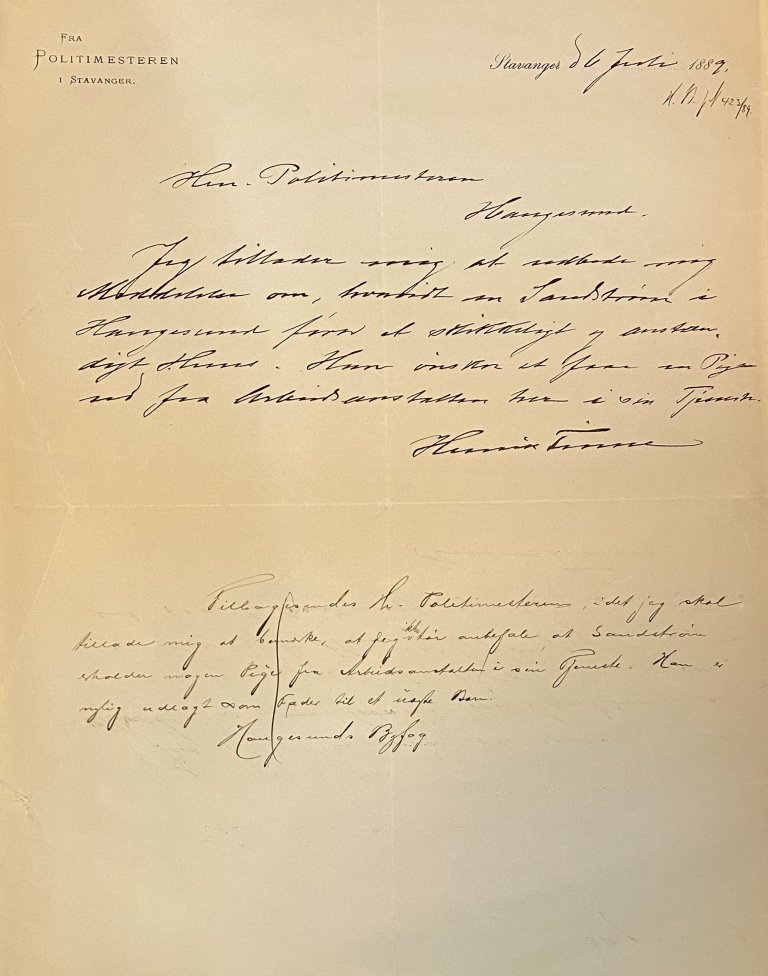 FRA
POLITIMESTEREN
I STAVANGER.
Stavanger d 6 Juli 1889.
423/89.
Herr Politimesteren
Haugesund.
Jeg tillader mig at udbede mig
Meddelelse om, hvorvidt en Sandstrøm i
Haugesund fører et skikkeligt og anstæn-
digt Huus. Han ønsker at faae en Pige
ud fra Arbeidsanstalten her i sin Tjeneste.
Henrik Finne
Tilbagesendes Hr. Politimesteren, idet jeg skal
tillade mig at bemærke, at jeg ikke tør anbefale, at Sandstrøm
erholder nogen Pige fra Arbeidsanstalten i sin Tjeneste. Han er
nylig udlagt som Fader til et uægte Barn.
Haugesunds Byfog